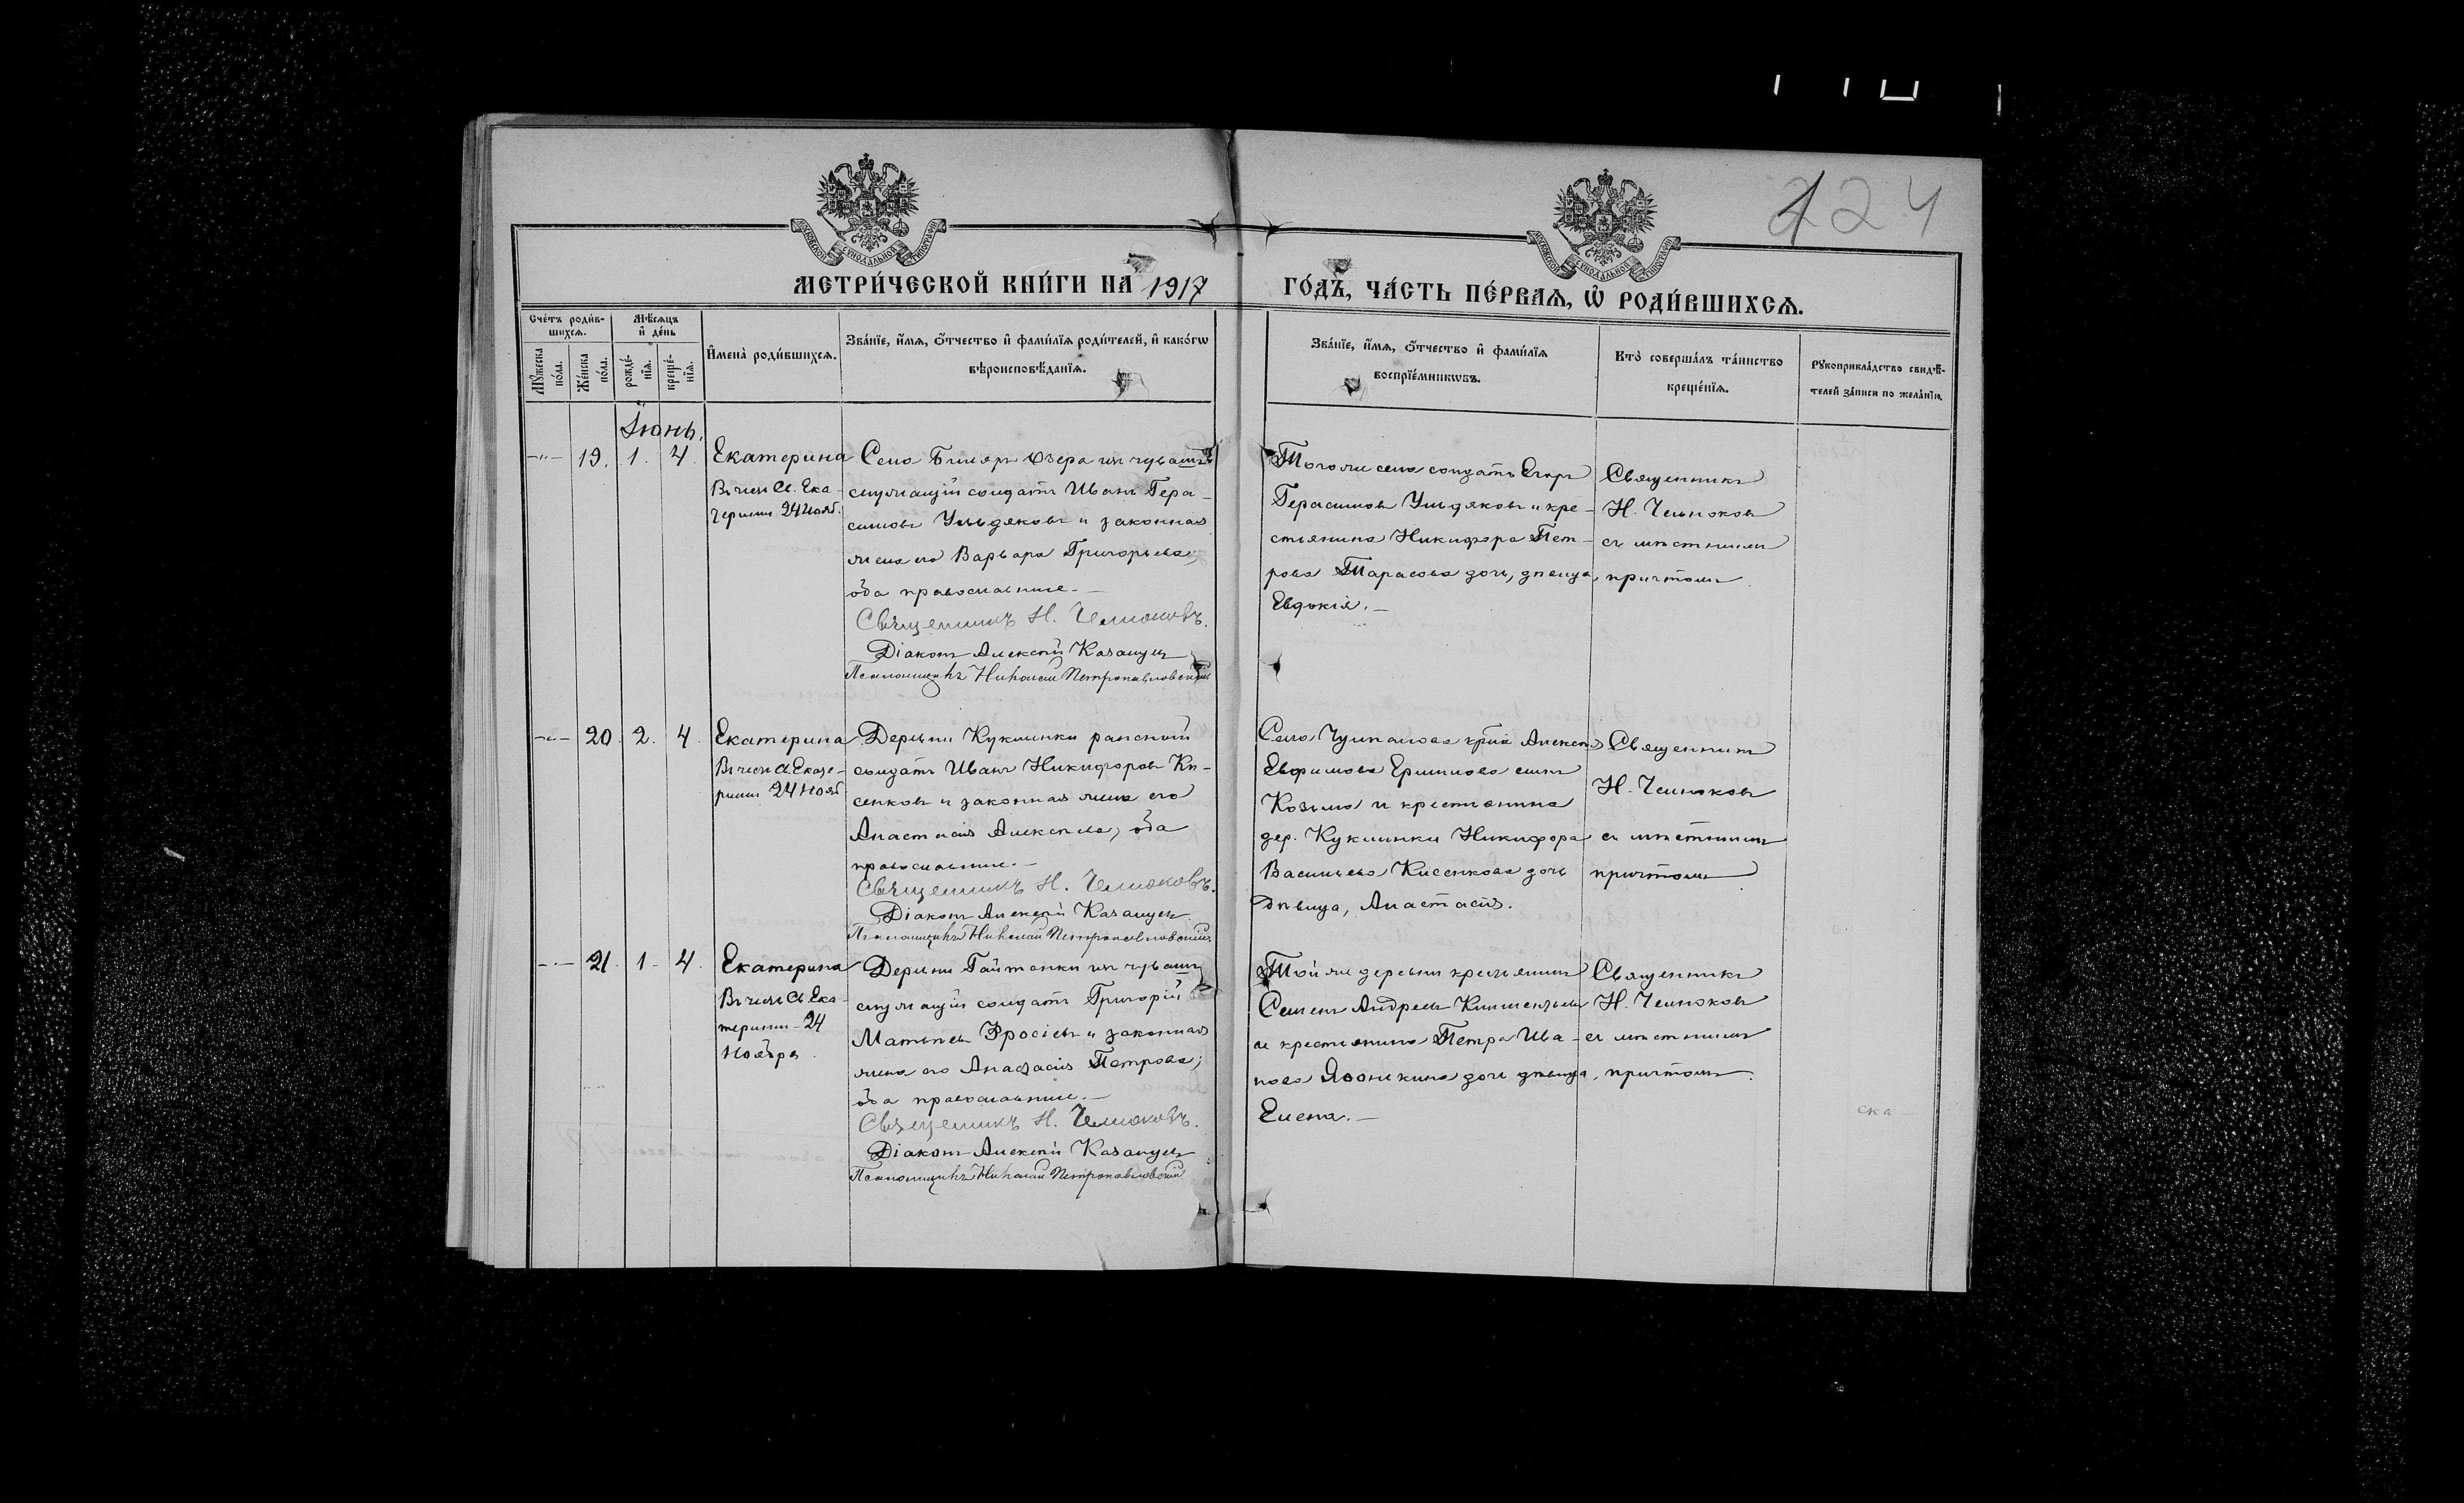 224
МОСКОВСКОЙ СУНОДАЛЬНОЙ ТИПОГРАФІИ
МОСКОВСКОЙ СУНОДАЛЬНОЙ ТИПОГРАФІИ
МЕТРИ́ЧЕСКОЙ КНИ́ГИ НА 1917 ГО́ДЪ, ЧА́СТЬ ПЕ́РВАѦ, Ѡ҆ РОДИ́ВШИХСѦ.
Сче́тъ роди́в-
шихсѧ.
Мꙋ́жеска по́ла.
Же́нска по́ла.
Мѣ́сѧцъ и҆ де́нь
рожде́-нїѧ.
креще́-нїѧ.
И҆мена̀ роди́вшихсѧ.
Зва́нїе, и҆́мѧ, ѻ҆́тчество и҆ фами́лїѧ роди́телей, и҆ како́гѡ
вѣроисповѣ́данїѧ.
Зва́нїе, и҆́мѧ, ѻ҆́тчество и҆ фами́лїѧ
воспрїе́мникѡвъ.
Кто̀ соверша́лъ та́инство
креще́нїѧ.
Рꙋкоприкла́дство свидѣ́-
телей за́писи по жела́нїю.
Іюнь.
-"- 19. 1. 4. Екатерина
Въ честь Св. Ека-
терины 24 Нояб.
Село Биляръ Озера изъ чувашъ
служащій солдатъ Иванъ Гера-
симовъ Ульдяковъ и законная
жена его Варвара Григорьева;
оба православные.-
Священникъ Н. Челноковъ.
Діаконъ Алексѣй Казанцевъ
Псаломщикъ Николай Петропавловскій
Того же села солдатъ Егоръ
Герасимовъ Ульдяковъ и кре-
стьянина Никифора Пет-
рова Тарасова дочь, дѣвица
Евдокія.-
Священникъ
Н. Челноковъ
съ мѣстнымъ
причтомъ.
-"- 20. 2. 4. Екатерина
Въ честь Св. Екате-
рины 24 Нояб
Деревни Куклинки раненый
солдатъ Иванъ Никифоровъ Ки-
сенковъ и законная жена его
Анастасія Алексѣева; оба
православные.-
Священникъ Н. Челноковъ.
Діаконъ Алексѣй Казанцевъ.
Псаломщикъ Николай Петропавловскій.
Село Чулпанова
Евфимова Ермилова сынъ
Козьма и крестьянина
дер. Куклинки Никифора
Васильева Кисенкова дочь
дѣвица, Анастасія.
Священникъ
Н. Челноковъ
съ мѣстнымъ
причтомъ
-"- 21. 1. 4. Екатерина
Въ честь Св. Ека-
терины - 24
Ноября.
Деревни Гайтанки изъ чувашъ
служащій солдатъ Григорій
Матвѣевъ и законная
жена его Анастасія Петрова;
оба православные.-
Священникъ Н. Челноковъ.
Діаконъ Алексѣй Казанцевъ
Псаломщикъ Николай Петропавловскій
Той же деревни крестьянинъ
Семенъ Андреевъ
и крестьянина Петра Ива-
нова дочь дѣвица
Елена.-
Священникъ
Н. Челноковъ
съ мѣстнымъ
причтомъ.